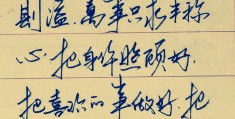 则溢.万事只求半称
心.把身体照顾好.
把喜欢的事做好.把